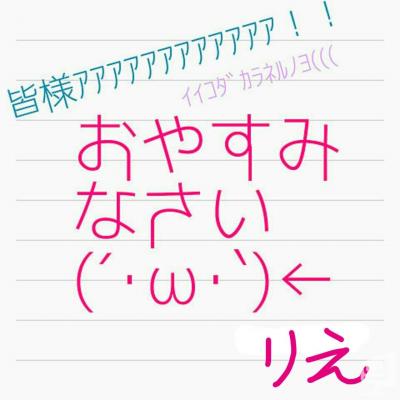 皆様ｧｧｧｧｧｧｧｧｧｧｧｧ！！
ｲｲｺﾀﾞｶﾗﾈﾙﾉﾖ(((
おやすみ
なさい
(´･ω･`)←
りえ